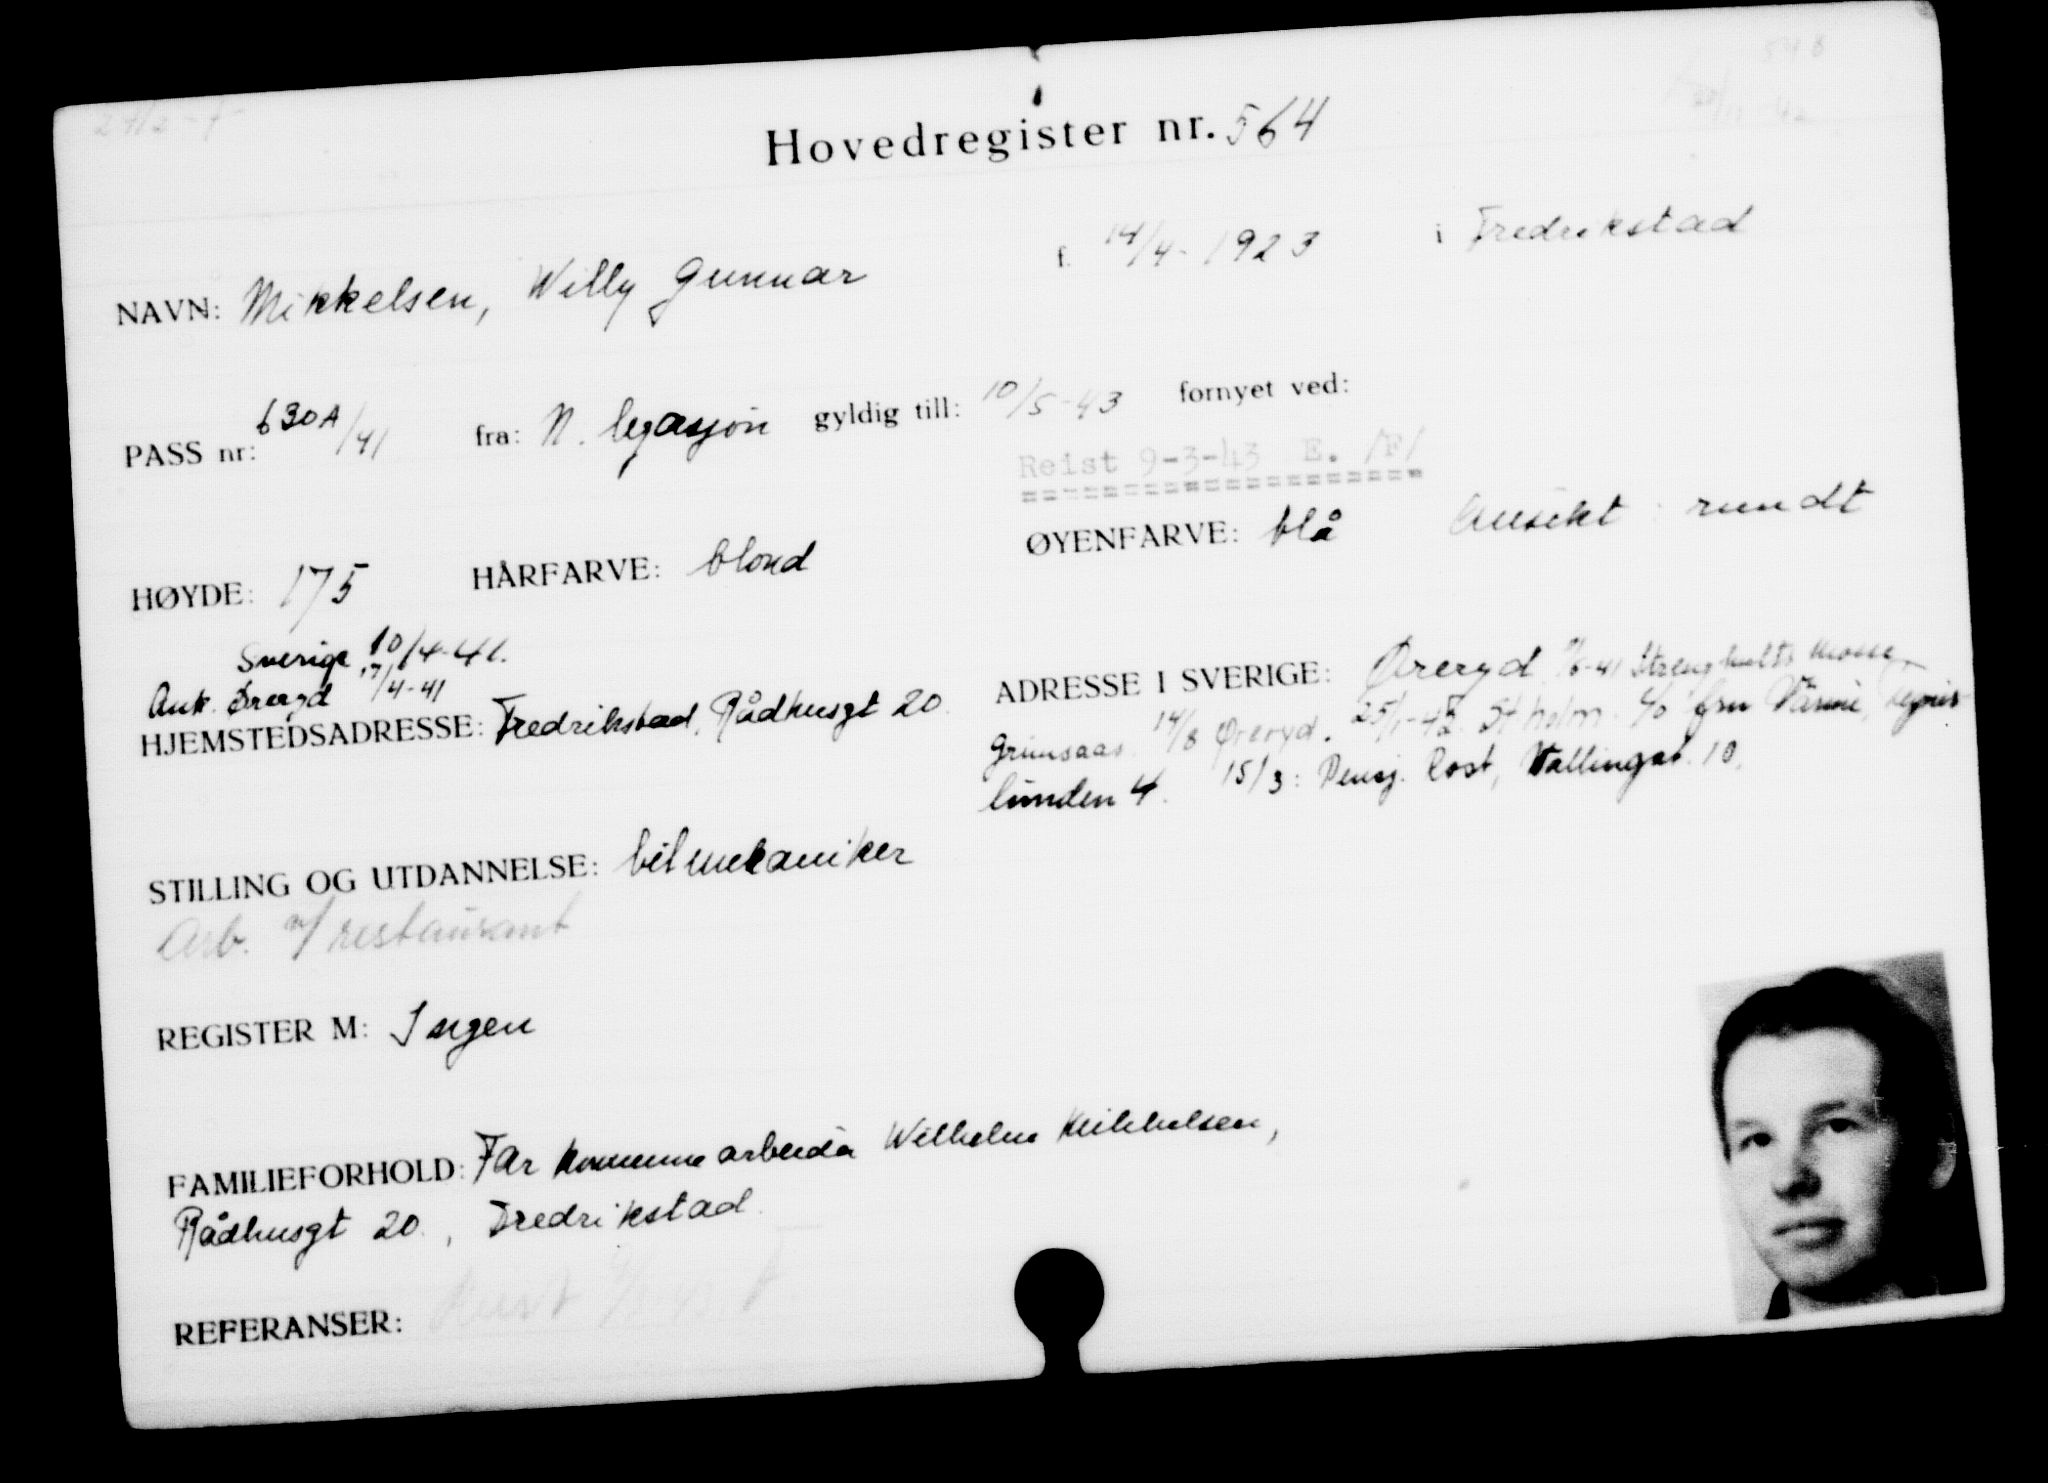 Hovedregister nr. 564
NAVN: Mikkelsen, Willy Gunnar f. 14/4-1923 i Fredrikstad
PASS nr: 630A/41 fra: N. legasjon gyldig till: 10/5-43 fornyet ved:
Reist 9-3-43 E. /F/
HØYDE: 175 HÅRFARVE: blond ØYENFARVE: blå Ansikt rundt
Sverige 10/4-41.
Ank. Øreryd 17/4-41
HJEMSTEDSADRESSE: Fredrikstad, Rådhusgt 20.
ADRESSE I SVERIGE: Øreryd /6-41 Strenghults mosse,
Grimsaas. 14/8 Øreryd. 25/1-42 St.holm c/o fru
lunden 4. 15/3: Pensj. Rost, Wallingat. 10.
STILLING OG UTDANNELSE: bilmekaniker
Arb. v/restaurant
REGISTER M: Ingen
FAMILIEFORHOLD: Far kommunearbeider Wilhelm Mikkelsen,
Rådhusgt 20., Fredrikstad.
REFERANSER: